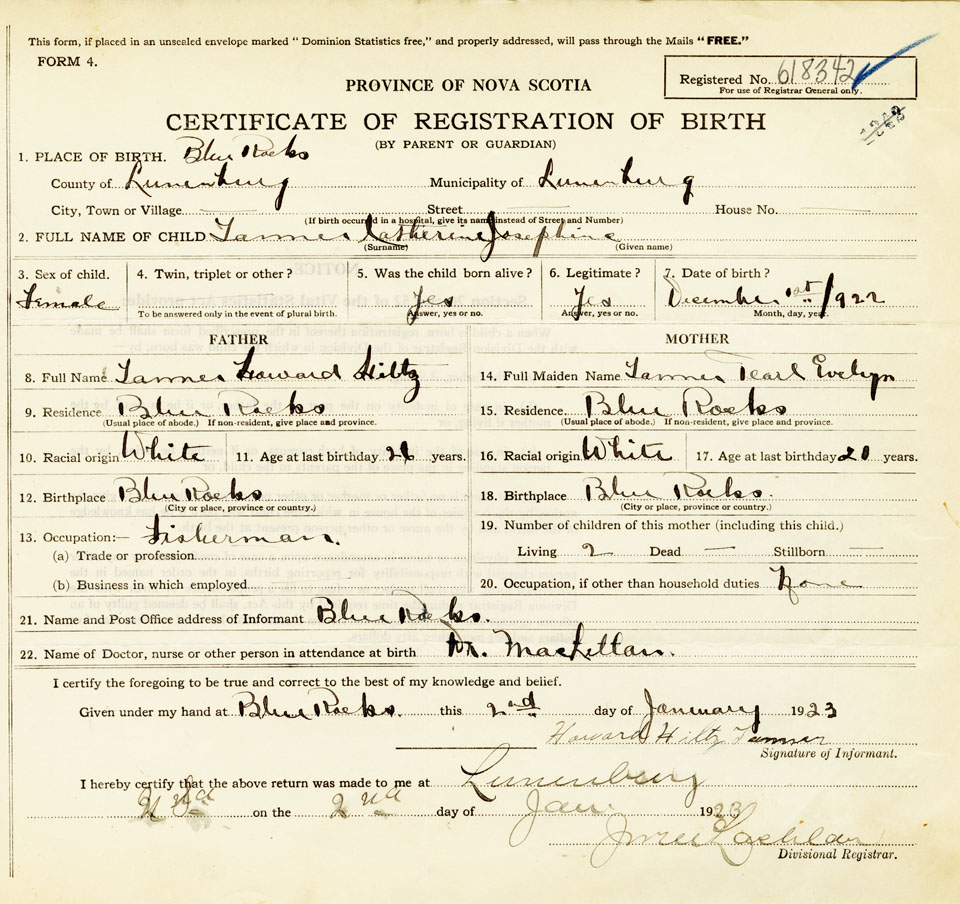 This form, if placed in an unsealed envelope marked " Dominion Statistics free," and properly addressed, will pass through the Mails "FREE."
FORM 4.
Registered No. 618342
For use of Registrar General only.
PROVINCE OF NOVA SCOTIA
CERTIFICATE OF REGISTRATION OF BIRTH
(BY PARENT OR GUARDIAN)
1. PLACE OF BIRTH. Blue Rocks
County of Lunenburg Municipality of Lunenburg
City, Town or Village Street House No.
(If birth occurred in a hospital, give its name instead of Street and Number)
2. FULL NAME OF CHILD Tanner Catherine Josephine
(Surname) (Given name)
3. Sex of child. 4. Twin, triplet or other? 5. Was the child born alive? 6. Legitimate? 7. Date of birth?
Female Yes Yes December 1st 1922
To be answered only in the event of plural birth. Answer, yes or no. Answer, yes or no. Month, day, year.
FATHER MOTHER
8. Full Name Tanner Howard Hiltz 14. Full Maiden Name Tanner Pearl Evelyn
9. Residence Blue Rocks 15. Residence Blue Rocks
(Usual place of abode.) If non-resident, give place and province. (Usual place of abode.) If non-resident, give place and province.
10. Racial origin White 11. Age at last birthday years. 16. Racial origin White 17. Age at last birthday 20 years.
12. Birthplace Blue Rocks 18. Birthplace Blue Rocks.
(City or place, province or country.) (City or place, province or country.)
13. Occupation:— Fisherman. 19. Number of children of this mother (including this child.)
(a) Trade or profession Living 2 Dead — Stillborn —
(b) Business in which employed 20. Occupation, if other than household duties None
21. Name and Post Office address of Informant Blue Rocks.
22. Name of Doctor, nurse or other person in attendance at birth Dr. MacLellan.
I certify the foregoing to be true and correct to the best of my knowledge and belief.
Given under my hand at Blue Rocks. this 2nd day of January 1923
Howard Hiltz Tanner
Signature of Informant.
I hereby certify that the above return was made to me at Lunenburg
on the 2nd day of Jan 1923
Divisional Registrar.